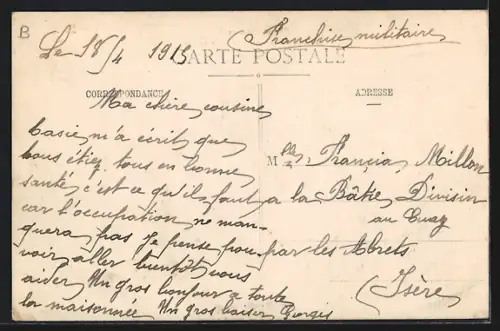 B
Le 18/4 1915
Franchise militaire
CARTE POSTALE
CORRESPONDANCE
ADRESSE
Ma chère cousine
m'a écrit que
vous étiez tous en bonne
santé c'est ce qu'il faut
car l'occupation ne man-
quera pas Je pense pou-
voir aller bientôt vous
aider Un gros bonjour a toute
la maisonnée Un gros baiser Georges
Mlle Francia Millon
a la Bâtie Divisin
au
par les Abrets
(Isère)